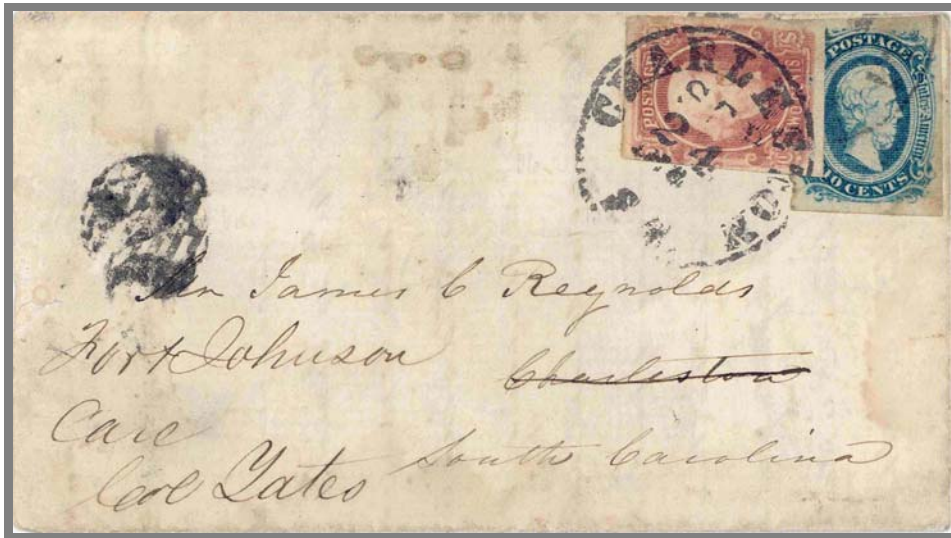 POSTAGE
10 CENTS
CHARLESTON
Mr James C Reynolds
Fort Johnson
Charleston
Care
Col Yates
South Carolina